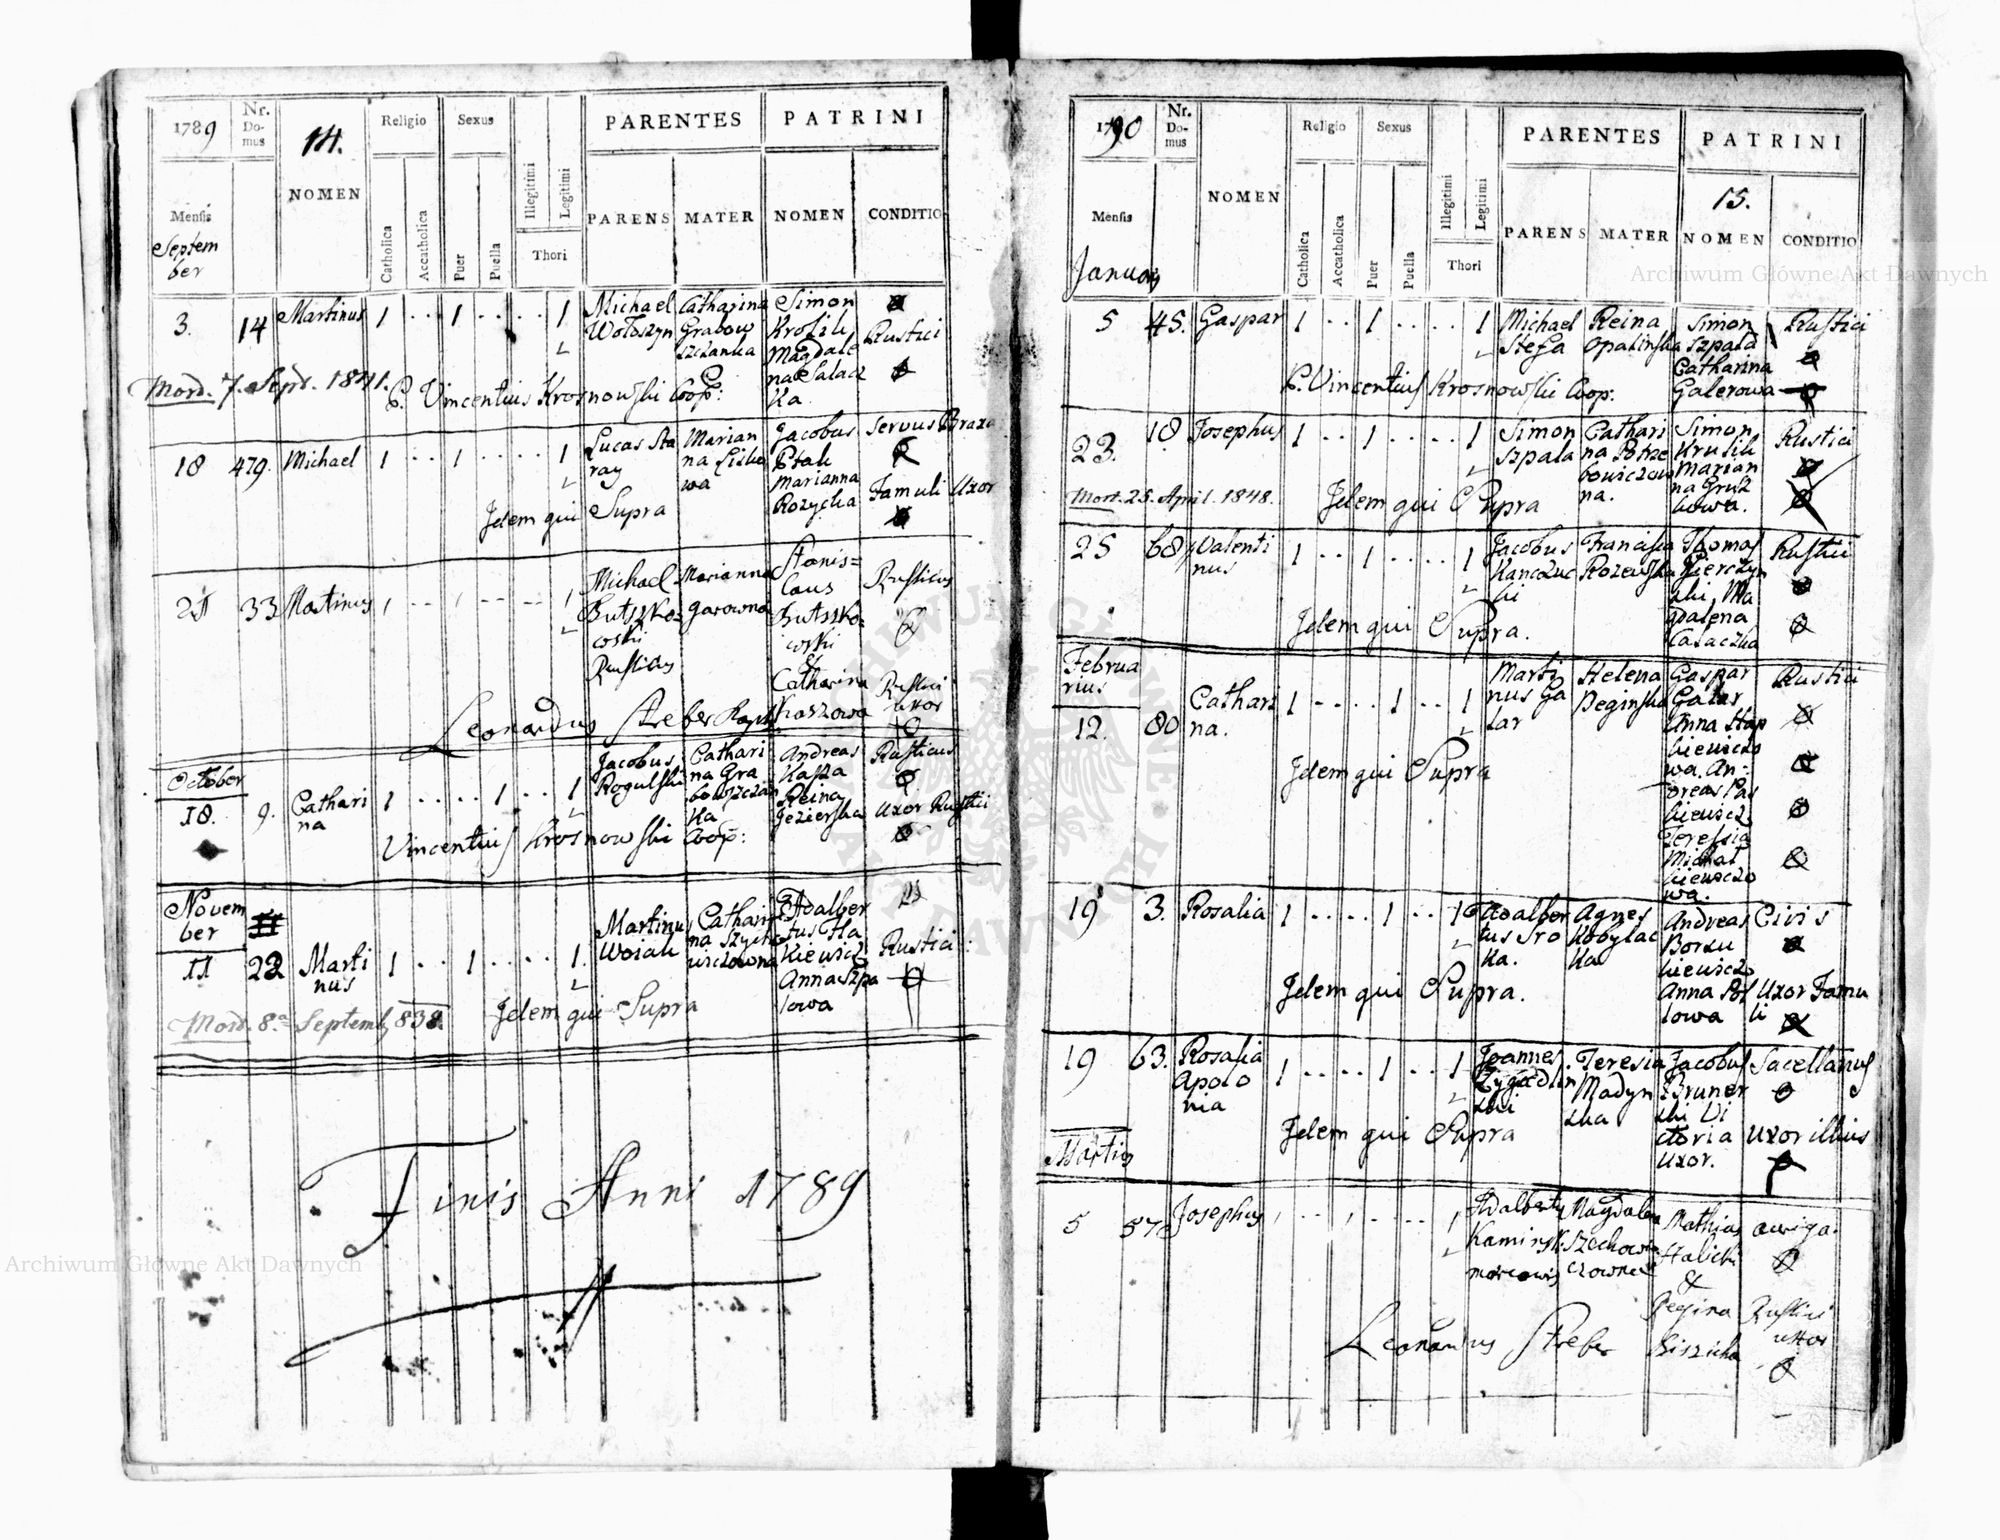 1789
Nr.
Do-
mus
14.
NOMEN
Religio
Sexus
Catholica
Accatholica
Puer
Puella
Illegitimi
Legitimi
Thori
PARENTES
PATRINI
PARENS
MATER
NOMEN
CONDITIO
Mensis
Septem
ber
3.
14
Martinus
1 . . 1 . . . . 1
Michael
Wołoszyn
Catharina
Grabow
szczanka
Simon
Krolik
Magdale
na Salacz
ka
Rustici
Mort. 7. Sept. 1841.
P. Vincentius Krosnowski Coop:
18
479.
Michael
1 . . 1 . . . . 1
Lucas Sta
ray
Marian
na Lisko
wa
Jacobus
Ptak
Marianna
Rozycka
Servus Braxa
Famuli Uxor
Idem qui Supra
21
33
Martinus
Michael
Butszko=
wski
Rusticus
Marianna
Stanis=
laus
Butszko=
wski
&
Catharina
Rusticus
Rustici
uxor
Leonardus Streber
October
18.
9.
Cathari
na
1 . . . . 1 . . 1
Jacobus
Rogulski
Cathari
na Gra
bowszczan
ka
Andreas
Kasza
Reina
Jezierska
Rusticus
Uxor Rustici
Vincentius Krosnowski Coop:
Novem
ber
11
22
Marti
nus
1 . . 1 . . . . 1.
Martinus
Woiak
Cathari
na Szyct
wiczowna
Adalber
tus Sta
kiewicz
Anna Szpa
lowa
Rustici:
Mort. 8.a Septemb 838.
Idem qui Supra
Finis Anni 1789
1790
Nr.
Do-
mus
NOMEN
Religio
Sexus
Catholica
Accatholica
Puer
Puella
Illegitimi
Legitimi
Thori
PARENTES
PATRINI
15.
PARENS
MATER
NOMEN
CONDITIO
Mensis
Januarij
5
45.
Gaspar
1 . . 1 . . . . 1
Michael
Stefa
Reina
Opalinska
Simon
Szpala
Catharina
Galerowa
Rustici
P. Vincentius Krosnowski Coop:
23.
18
Josephus
1 . . 1 . . . . 1
Simon
Szpala
Cathari
na Potrze
bowiczow
na.
Simon
Krulik
Marian
na Grusz
kowa.
Rustici
Mort. 25. April. 1848.
Idem qui Supra
25
68
Valenti
nus
1 . . 1 . . . . 1
Jacobus
Kanczuc
ki
Francisca
Rozewska
Thomas
Pierczyn
ski, Ma
gdalena
Casaczka
Rustici
Idem qui Supra.
Februa
rius
12.
80
Cathari
na.
1 . . . . 1 . . 1
Marti
nus Ga
lar
Helena
Deginska
Gaspar
Galar
Anna Stap
kiewiczo
wa. An:
dreas Pas
kiewicz
Teressia
Michal
kiewiczo
wa.
Rustici
Idem qui Supra
19
3.
Rosalia
1 . . . . 1 . . 1
Adalber
tus Sro
ka.
Agnes
Kobylac
ka
Andreas
Borku
kiewicz
Anna Pol
lowa
Civis
Uxor Famu
li
Idem qui Supra.
19
63.
Rosalia
Apolo
nia
1 . . . . 1 . . 1
Joannes
Zygadlin
ski
Teresia
Madyn
ska
Jacobus
Bruner
ski Vi
ctoria
Uxor.
Sacellanus
Uxor illius
Idem qui Supra
Martius
5
570
Josephus
Adalbertus
Kaminsk:
Magdalena
Szechowi
czowna
Mathias
Halicki
&
Regina
auriga.
Rustici
uxor
Leonardus Streber
Archiwum Główne Akt Dawnych
Archiwum Główne Akt Dawnych
ARCHIWUM GŁÓWNE AKT DAWNYCH